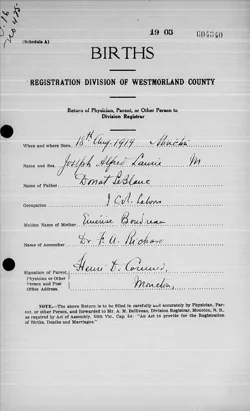 19 03
(Schedule A)
BIRTHS
REGISTRATION DIVISION OF WESTMORLAND COUNTY
Return of Physician, Parent, or Other Person to
Division Registrar
When and where Born, 18th Aug. 1919 Moncton
Name and Sex, Joseph Alfred M
Name of Father Donat LeBlanc
Occupation
Maiden Name of Mother Boudreau
Name of Accoucher Dr F. A. Richard
Signature of Parent,
Physician or Other
Person and Post
Office Address.
Moncton
NOTE.—The above Return is to be filled in carefully and accurately by Physician, Par-
ent, or other Person, and forwarded to Mr. A. M. Division Registrar, Moncton, N. B.,
as required by Act of Assembly, 50th Vic., Cap. 54: "An Act to provide for the Registration
of Births, Deaths and Marriages."